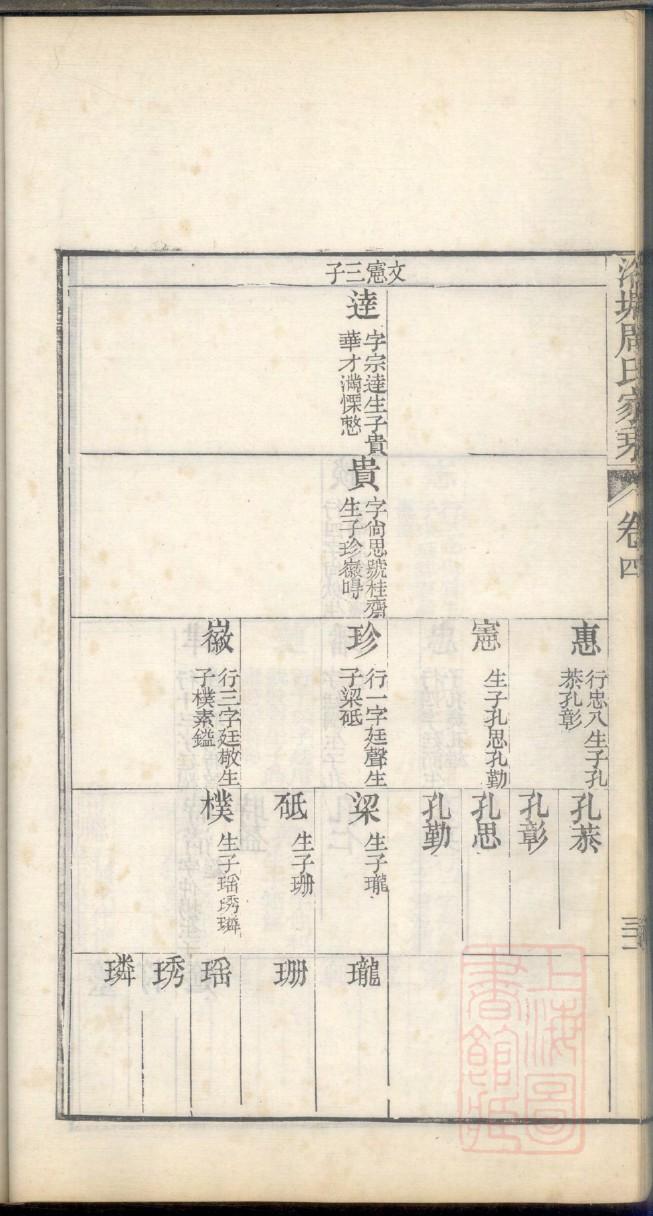 周氏家乘
卷四
文憲三子
逹
字宗逹生子貴
華才滿慄慗
貴
字尙思號桂齋
生子珍徽
惠
行忠八生子孔
㳟孔彰
憲
生子孔思孔勤
珍
行一字廷聲生
子梁砥
徽
行三字廷敬生
子樸素鎰
孔㳟
孔彰
孔思
孔勤
梁
生子瓏
砥
生子珊
樸
生子瑶琇璘
瓏
珊
瑶
琇
璘
上海圖
書館藏